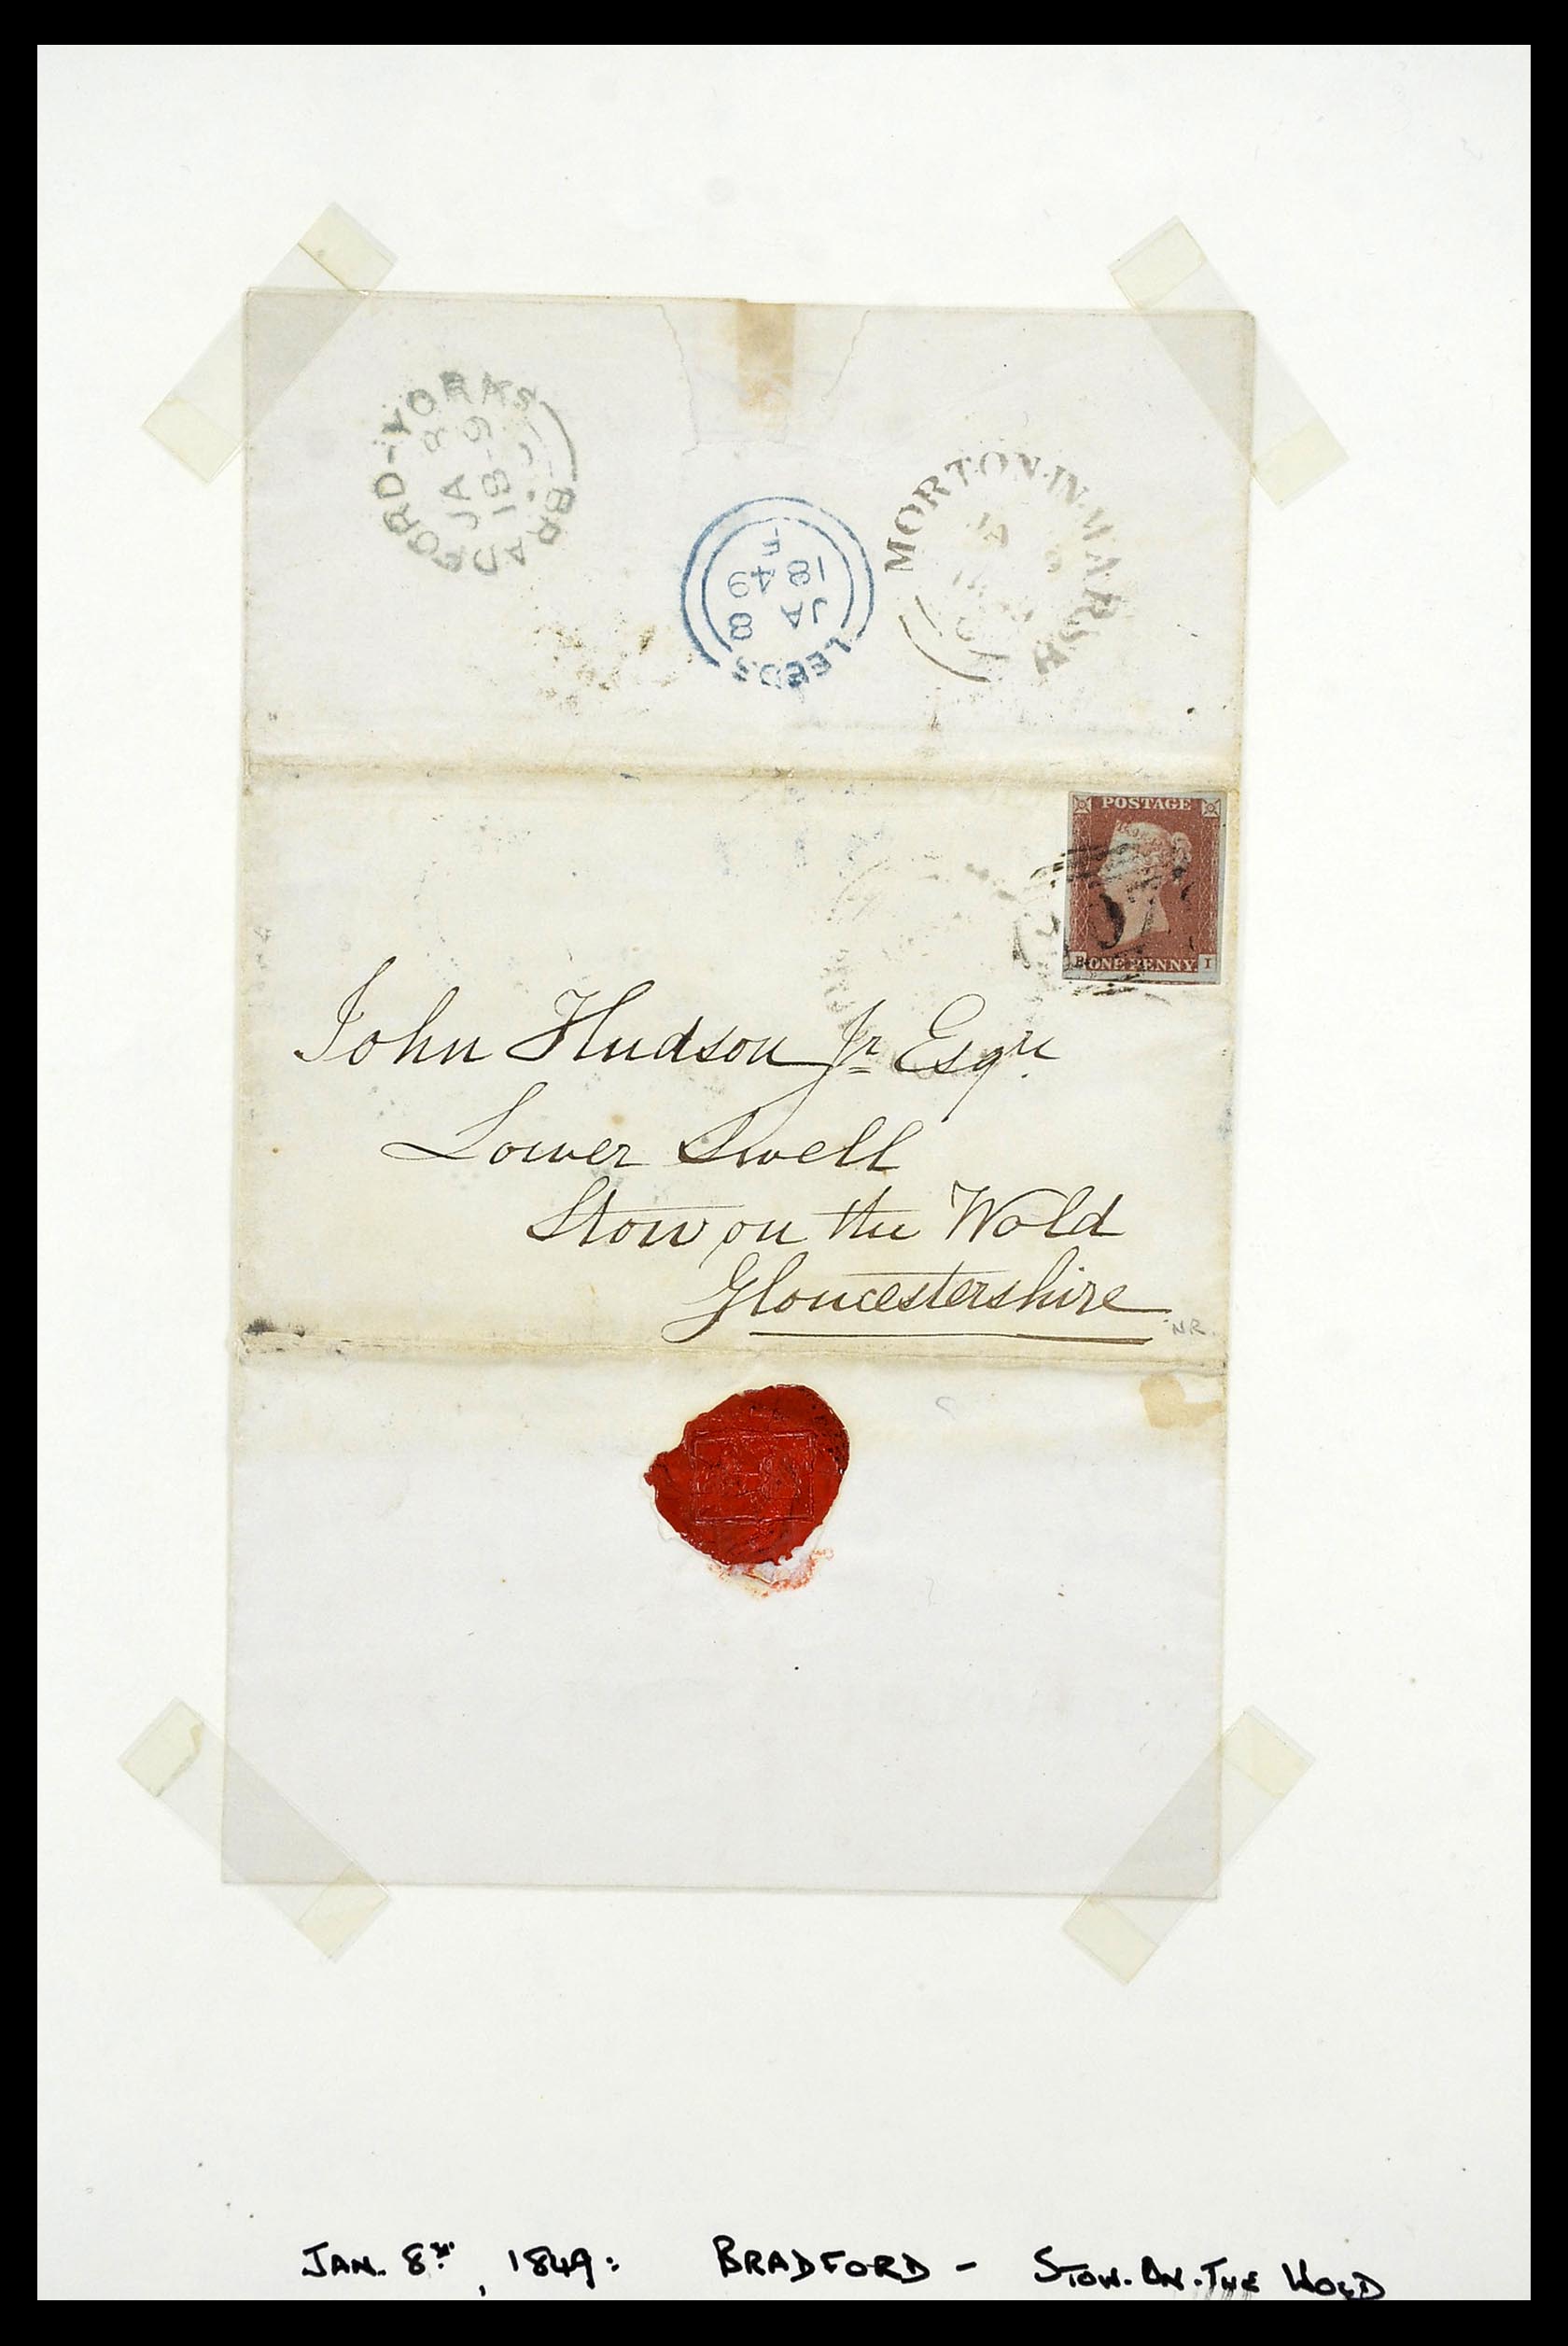 BRADFORD-YORKS
JA 8
18 9
MORTON-IN-MARSH
JA
LEEDS
JA 8
1849
F
POSTAGE
B ONE PENNY. I
John Hudson Jr Esqre
Lower Swell
Stow on the Wold
Gloucestershire
NR.
JAN. 8TH, 1849: BRADFORD - STOW-ON-THE WOLD